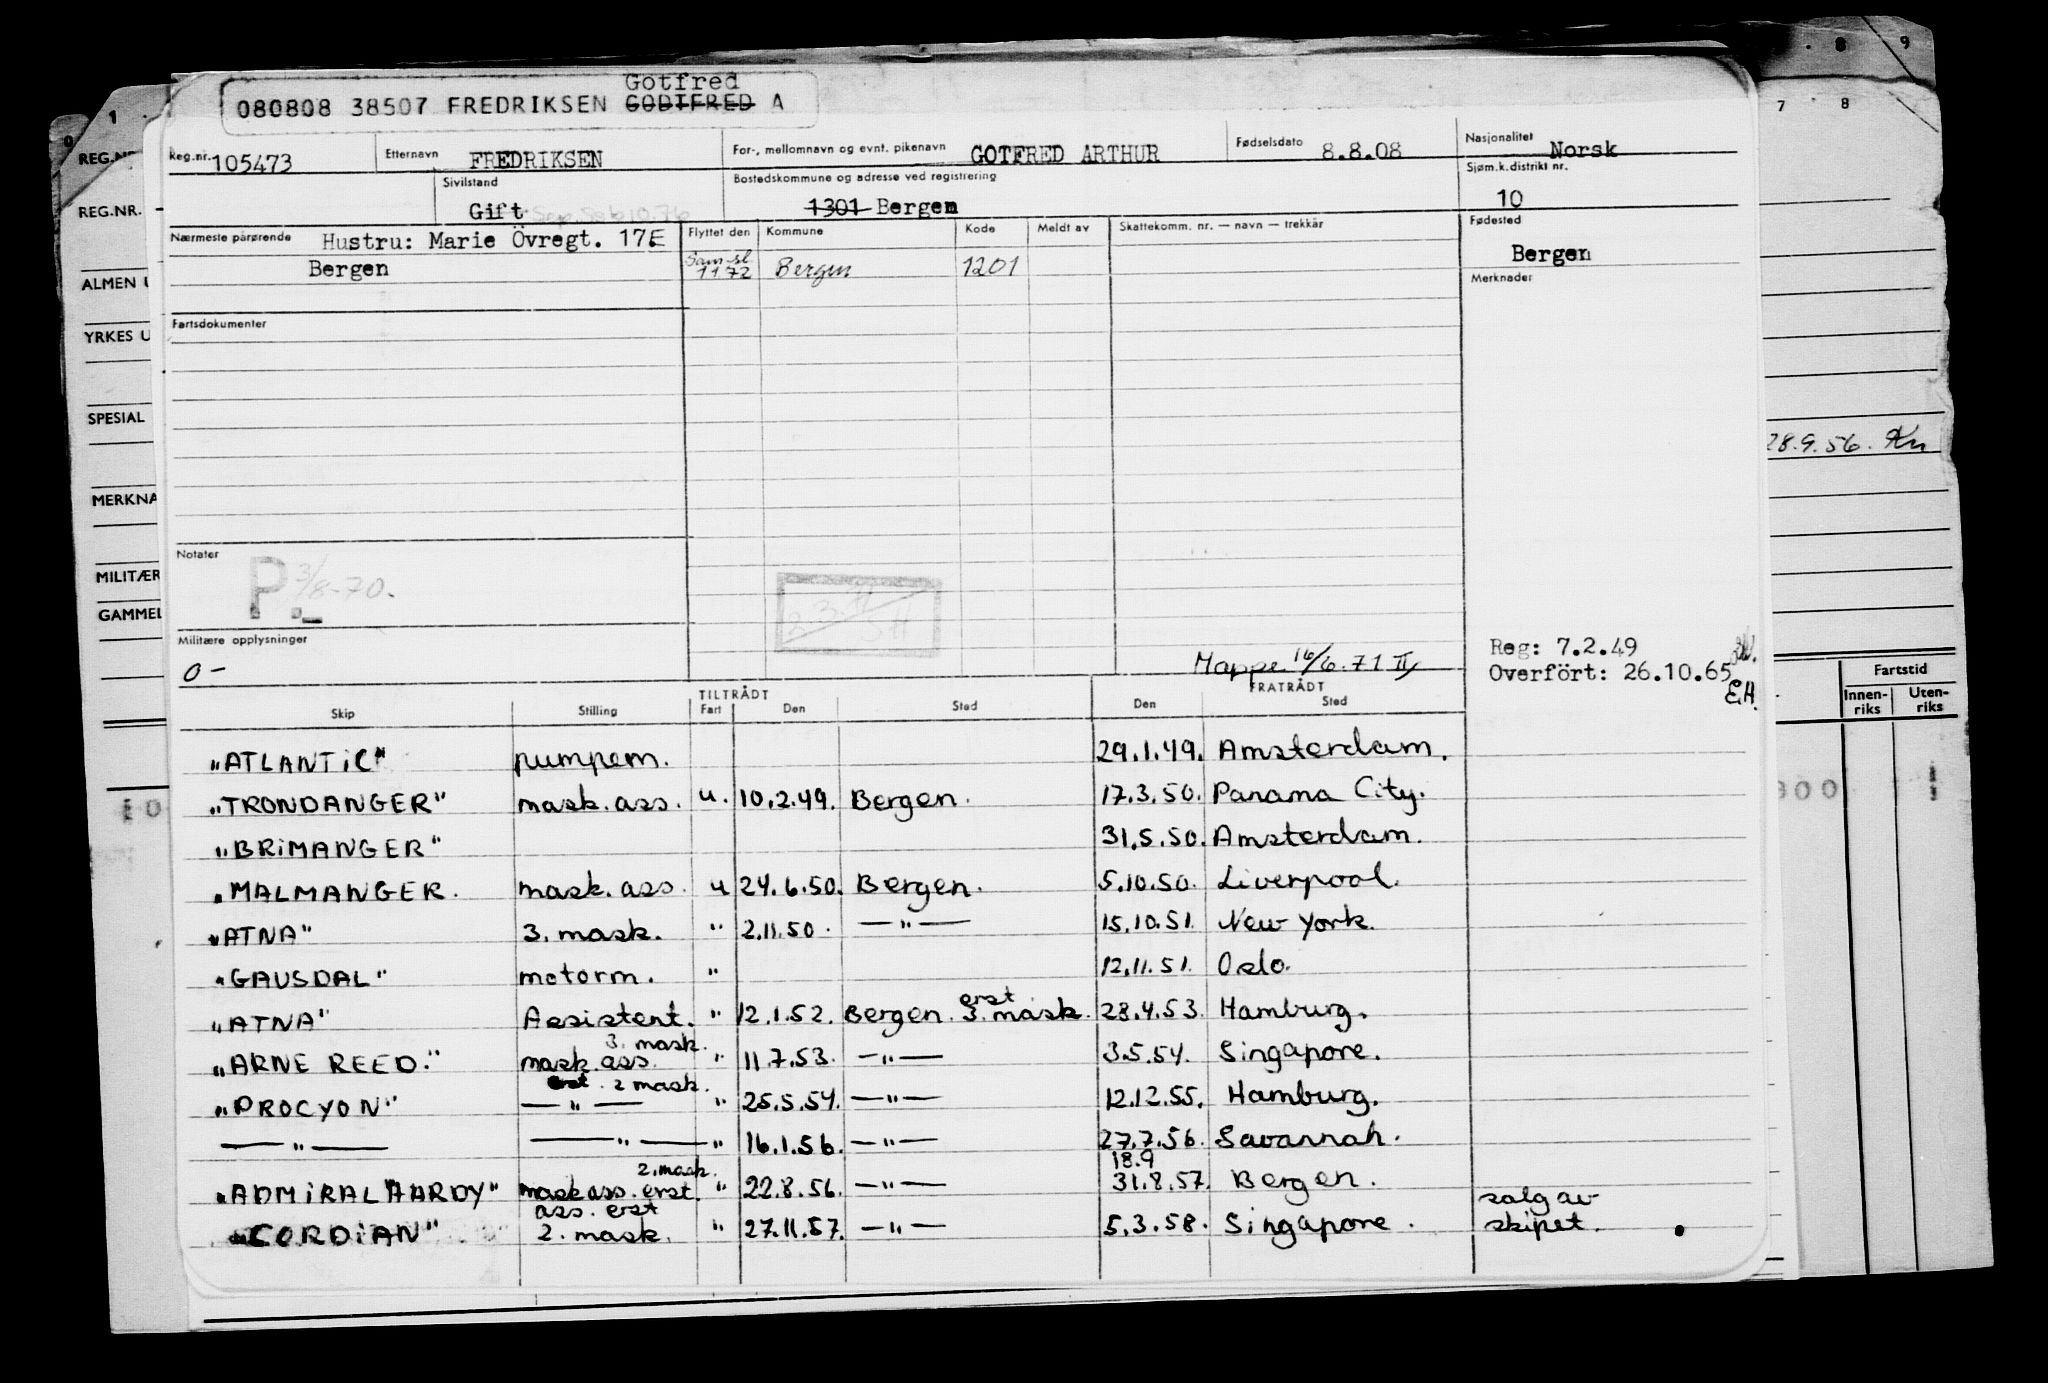 Gotfred
080808 38507 FREDRIKSEN GODTFRED A
Reg.nr. 105473 Etternavn FREDRIKSEN For-, mellomnavn og evnt. pikenavn GOTFRED ARTHUR Fødselsdato 8.8.08 Nasjonalitet Norsk
Sivilstand Gift Bostedskommune og adresse ved registrering 1301 Bergen Sjøm.k.distrikt nr. 10
Nærmeste pårørende Hustru: Marie Övregt. 17E Flyttet den Kommune Kode Meldt av Skattekomm. nr. — navn — trekkår Fødested
Bergen Sam.sl. 1172 Bergen 1201 Bergen
Merknader
Fartsdokumenter
Notater
P. 3/8-70.
Militære opplysninger
0 -
Mappe 16/6.71 II
Reg: 7.2.49
Overfört: 26.10.65
E.H.
TILTRÅDT FRATRÅDT
Skip Stilling Fart Den Sted Den Sted
"ATLANTIC" pumpem. 29.1.49. Amsterdam.
"TRONDANGER" mask. ass. u. 10.2.49. Bergen. 17.3.50. Panama City.
"BRIMANGER" 31.5.50. Amsterdam.
"MALMANGER. mask. ass. u 24.6.50. Bergen. 5.10.50. Liverpool.
"ATNA" 3. mask. " 2.11.50. —"— 15.10.51. New York.
"GAUSDAL" motorm. " 12.11.51. Oslo.
"ATNA" Assistent. " 12.1.52. Bergen. erst 3. mask. 28.4.53. Hamburg.
"ARNE REED." mask. ass. 3. mask. " 11.7.53. —"— 3.5.54. Singapore.
"PROCYON" —"— erst. 2 mask. " 25.5.54. —"— 12.12.55. Hamburg.
—"— —"— " 16.1.56. —"— 27.7.56. Savannah.
"ADMIRAL HARDY" mask ass. erst. 2. mask. " 22.8.56. —"— 18.9 31.8.57. Bergen.
"CORDIAN" ass. erst 2. mask. " 27.11.57. —"— 5.3.58. Singapore. salg av skipet.
REG.NR.
REG.NR.
ALMEN U
YRKES U
SPESIAL
MERKNA
MILITÆR
GAMMEL
1
8 9
7 8
28.9.56. Kn
Fartstid
Innen-riks Uten-riks